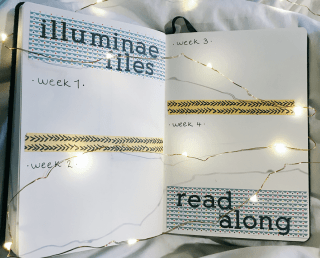 illuminae
files
· week 1 ·
· week 2 ·
· week 3 ·
· week 4 ·
read
along